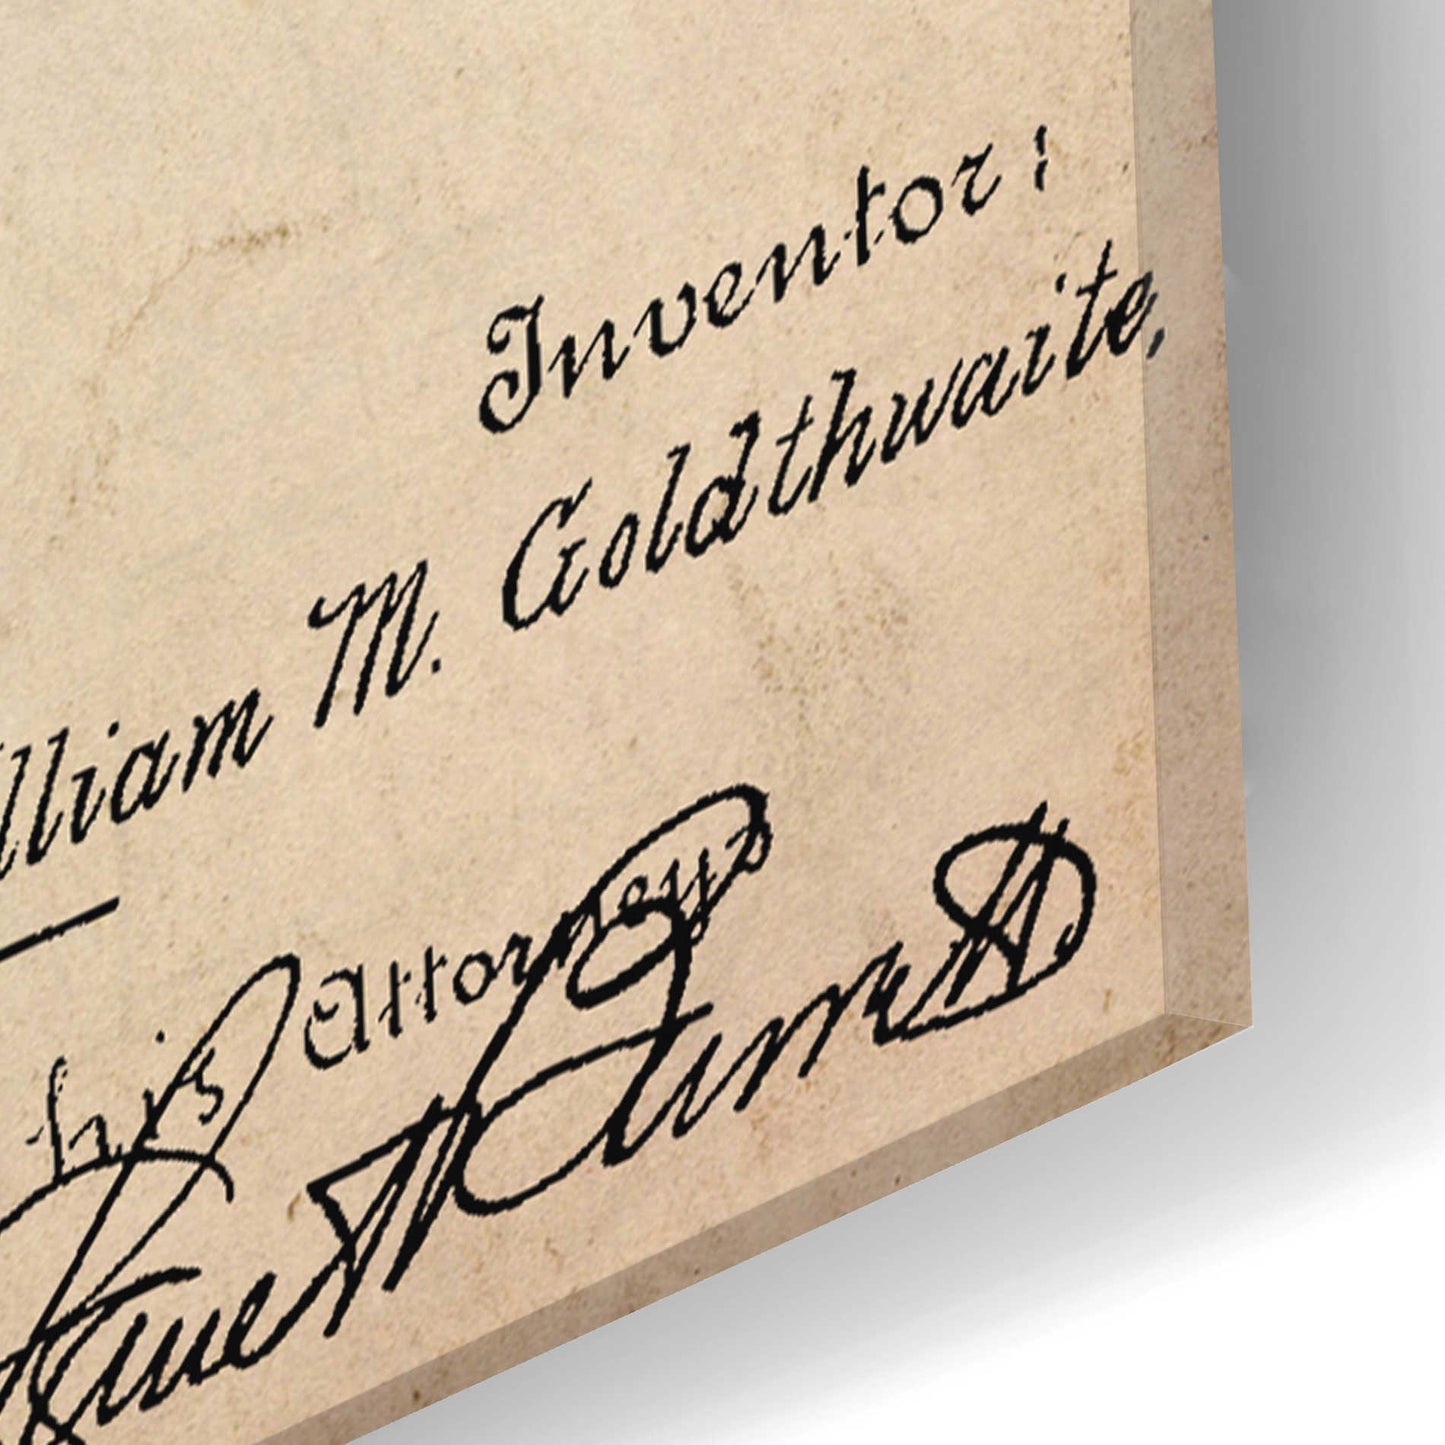 Inventor:
illiam M. Goldthwaite,
his Attorneys